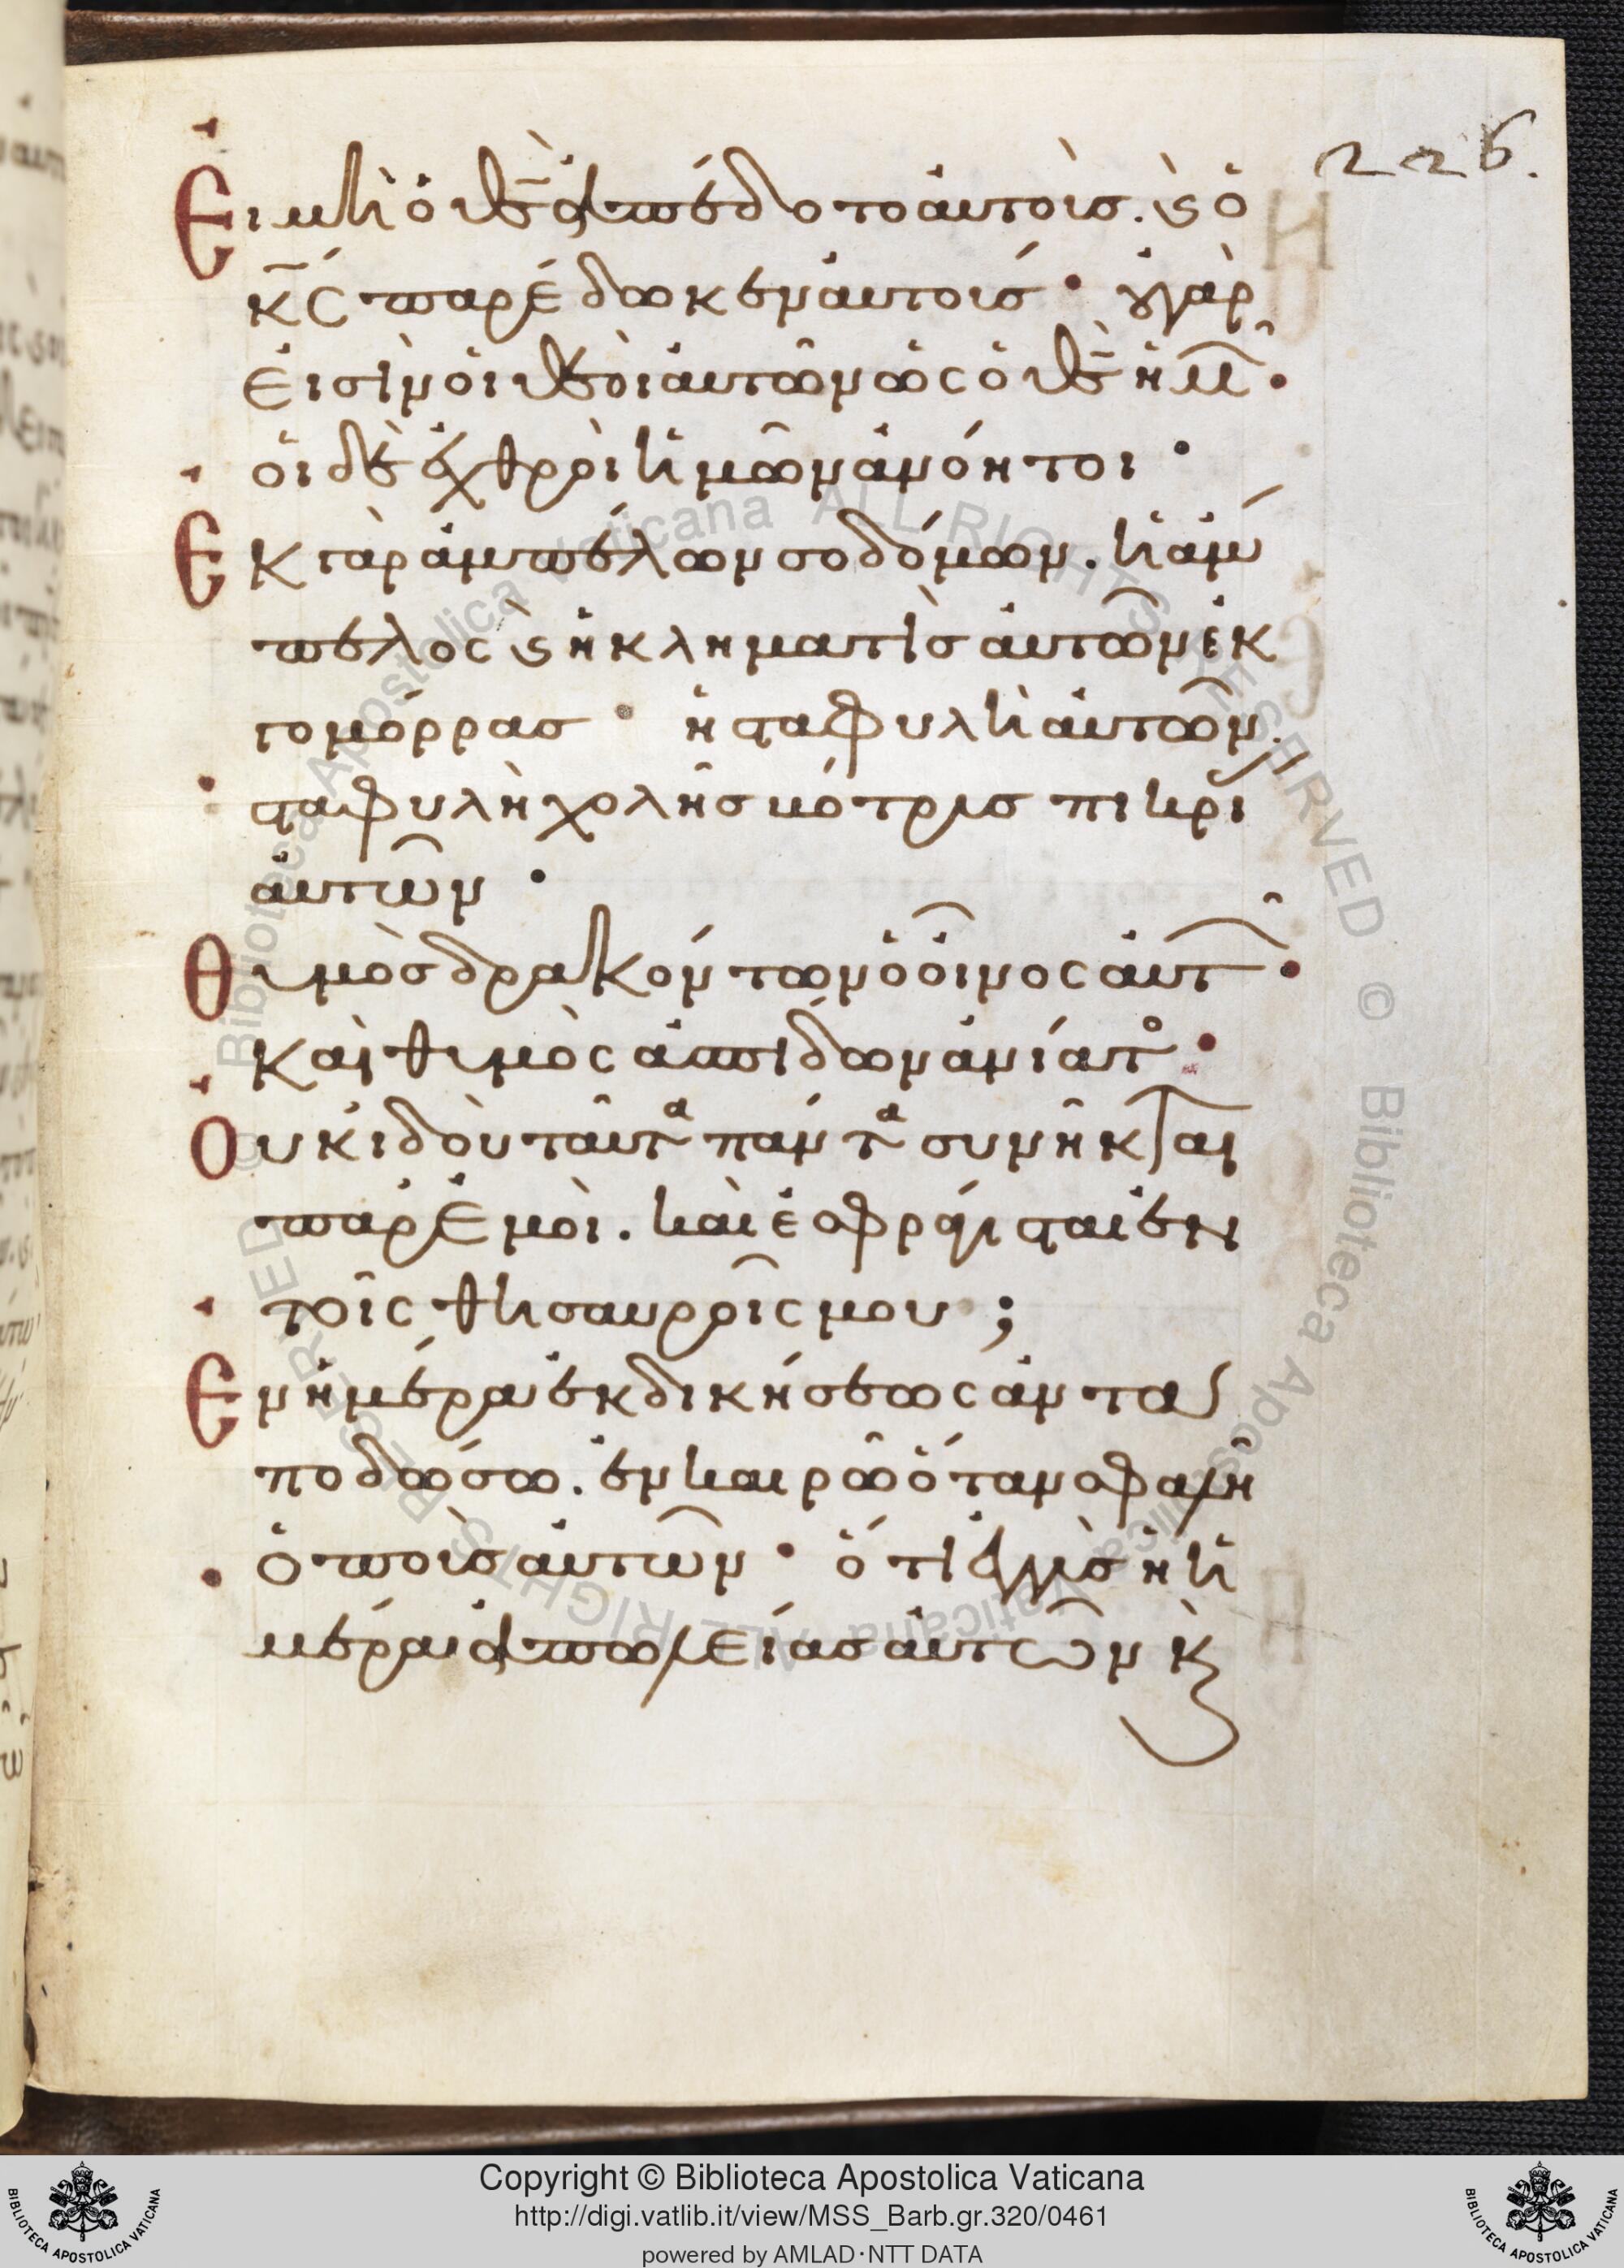 226.
Ει μὴ ὁ θς ἀπέδοτο αὐτοὺσ. καὶ ὁ
κς παρέδωκεν αὐτούσ · οὐ γὰρ
εἰσὶν οἱ θεοὶ αὐτῶν ὡς ὁ θς ἡμ ·
οἱ δὲ ἐχθροὶ ἡμῶν ἀνόητοι ·
Εκ γὰρ ἀμπέλων σοδόμων. ἡ ἄμ
πελος καὶ ἡ κληματὶσ αὐτῶν ἐκ
γομόρρασ · ἡ σταφυλὴ αὐτῶν
σταφυλὴ χολῆσ βότρυσ πικρί
αὐτῶν ·
Θυμὸσ δρακόντων ὁ οἶνος αὐτ ·
καὶ θυμὸς ἀσπίδων ἀνίατο ·
Ουκ ἰδοὺ ταῦτα πάντα συνῆκται
παρ ἐμοὶ. καὶ ἐσφράγισται ἐν
τοῖς θησαυροῖς μου ;
Εν ἡμέρα ἐκδικήσεως ἀνταἰ
ποδώσω. ἐν καιρῶ ὅταν σφαλῆ
ὁ ποὺσ αὐτῶν · ὅτι ἐγγὺσ ἡ ἡ
μέρα ἀπωλείασ αὐτῶν κ
Copyright © Biblioteca Apostolica Vaticana
http://digi.vatlib.it/view/MSS_Barb.gr.320/0461
powered by AMLAD·NTT DATA
BIBLIOTECA APOSTOLICA VATICANA
BIBLIOTECA APOSTOLICA VATICANA
Biblioteca Apostolica Vaticana ALL RIGHTS RESERVED ©